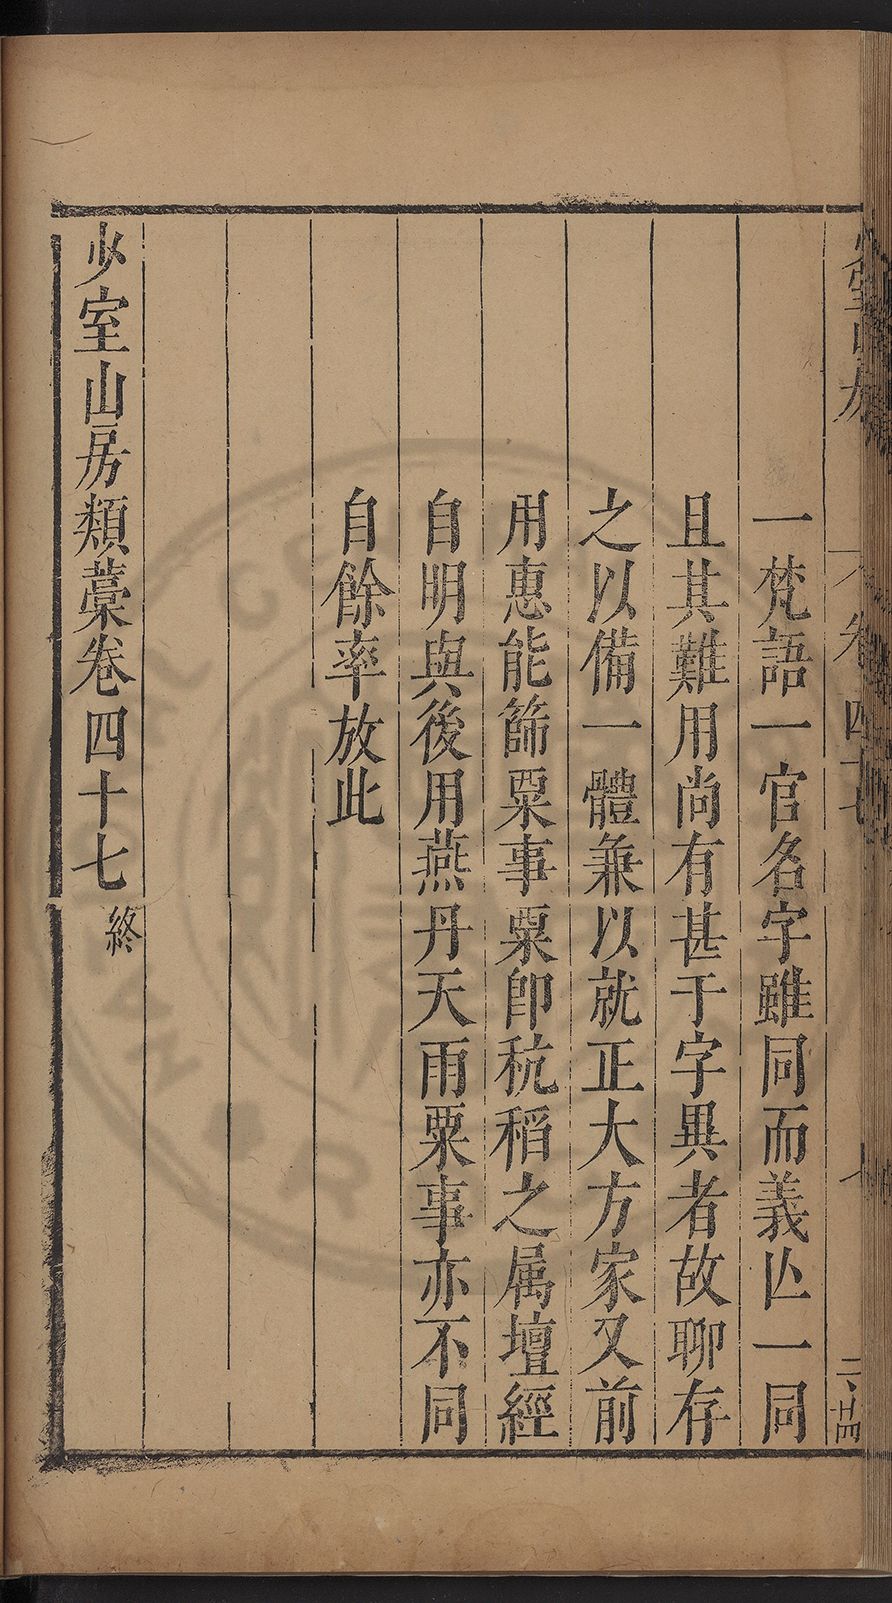 一梵語一官名字雖同而義亾一同
且其難用尚有甚于字異者故聊存
之以備一體兼以就正大方家又前
用惠能篩粟事粟卽秔稻之属壇經
自明與後用燕丹天雨粟事亦不同
自餘率放此
少室山房類藁卷四十七終